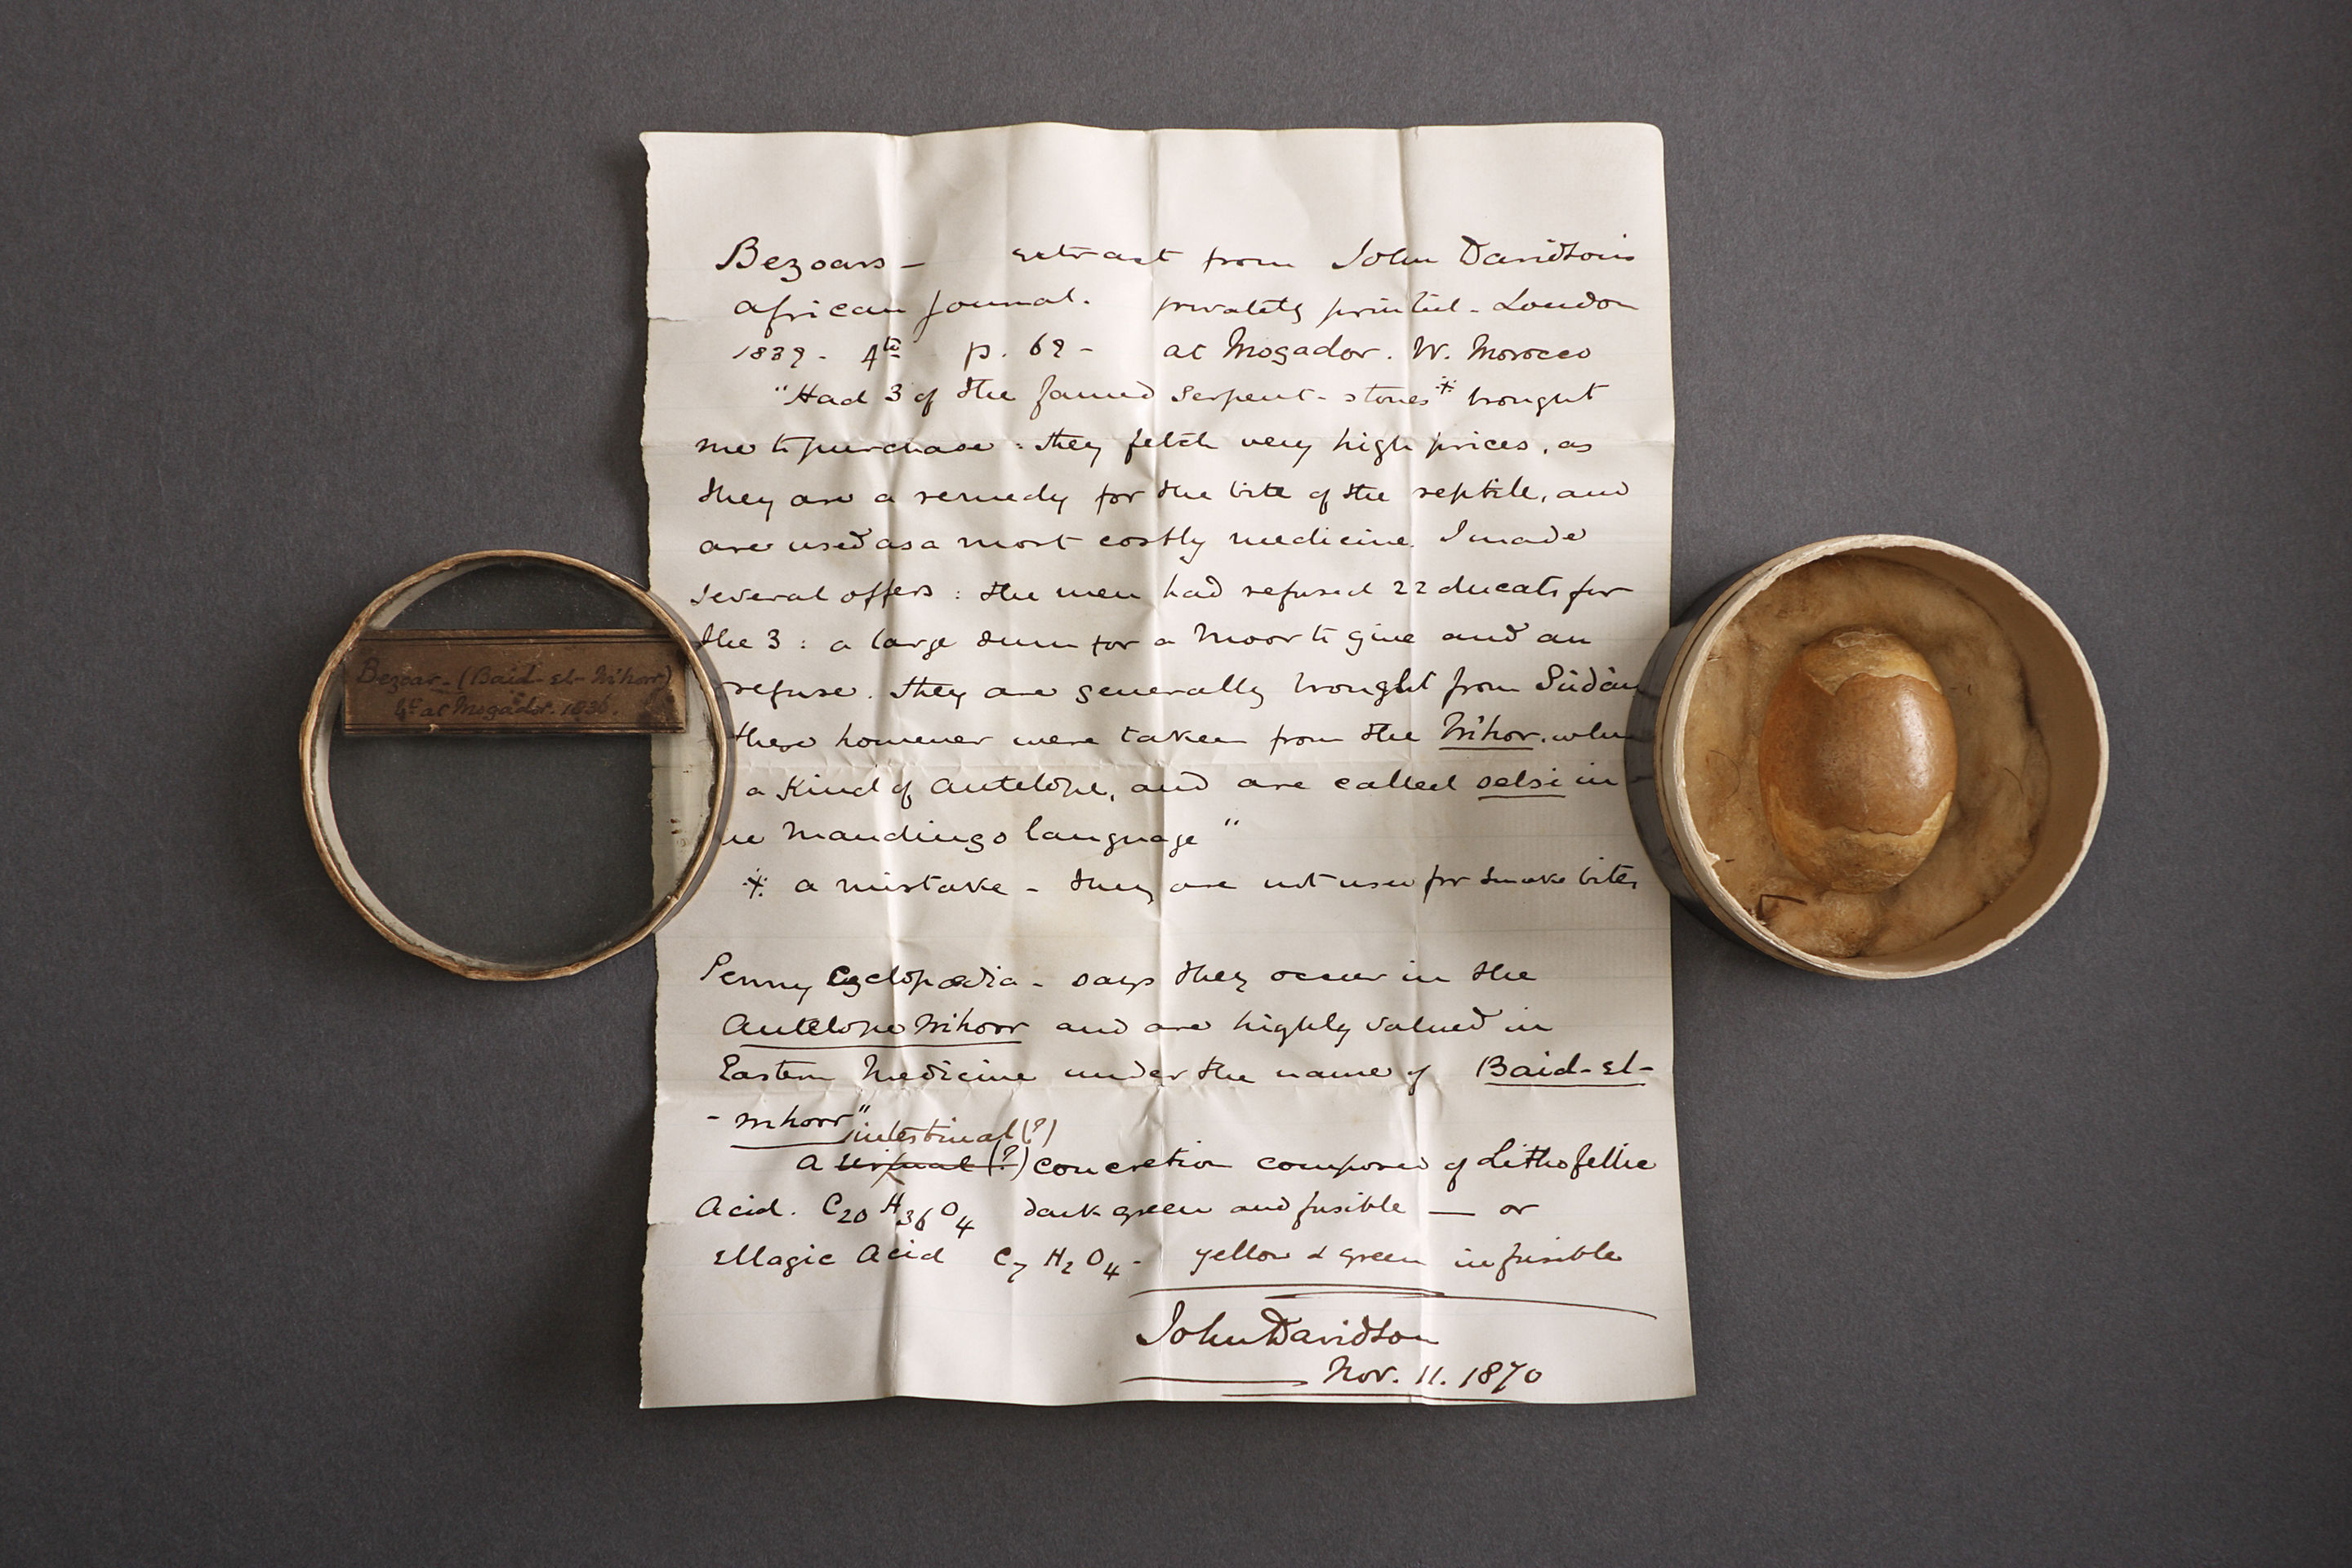 Bezoars – extract from John Davidson's
African Journal. privately printed – London
1839 – 4to p. 69 – at Mogador. W. Morocco
"Had 3 of the famed Serpent-stones※ brought
me to purchase : they fetch very high prices, as
they are a remedy for the bite of the reptile, and
are used as a most costly medicine. I made
several offers : the men had refused 22 ducats for
the 3 : a large sum for a Moor to give and an
refuse. they are generally brought from Súdán
these however were taken from the M'hor,
a kind of antelope, and are called selsi in
Mandingo language"
※ a mistake – they are not used for snake bites
Penny Cyclopædia – says they occur in the
Antelope M'horr and are highly valued in
Eastern Medicine under the name of Baid-el-
-mhorr"
intestinal (?)
A (?) concretion composed of Lithofellic
Acid. C20 H36 O4 dark green and fusible — or
Ellagic Acid C7 H2 O4 – yellow & green infusible
John Davidson
Nov. 11. 1870
Bezoar – (Baid-el-M'horr)
at Mogador. 1836.